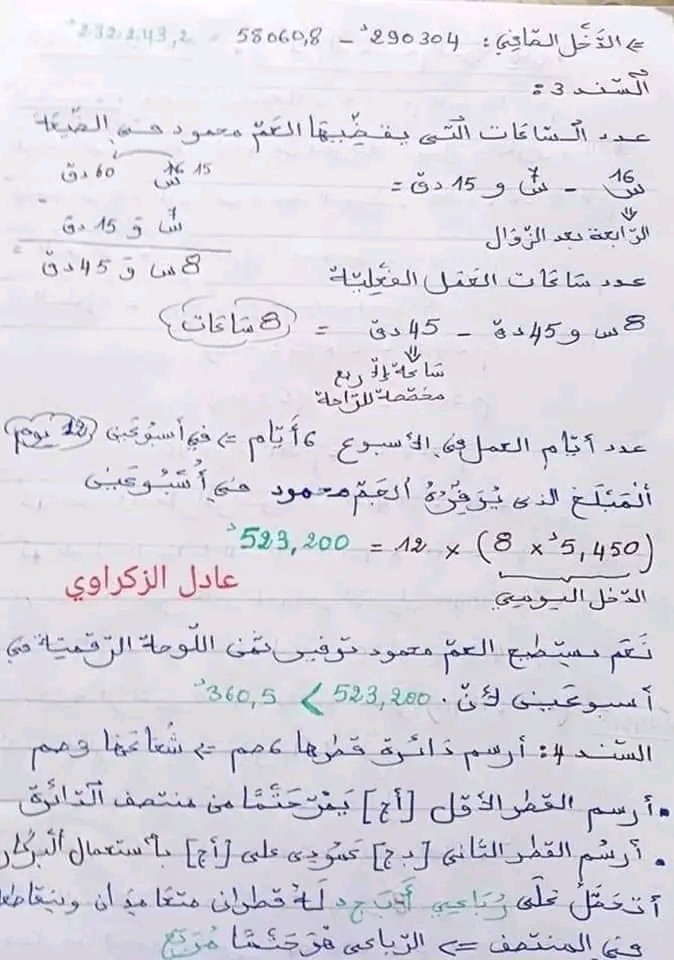 ⇐ الدّخل الصّافي: 290304ᵈ - 58060,8 = 232243,2ᵈ
السّند 3:
عدد السّاعات الّتي يقضّيها العمّ محمود في الضّيعة
16 س - 7 س و 15 دق =
15 16 س 60 دق
-
7 س و 15 دق
8 س و 45 دق
⇓
الرّابعة بعد الزّوال
عدد ساعات العمل الفعليّة
8 س و 45 دق - 45 دق = 8 ساعات
⇓
ساعة إلّا ربع
مخصّصة للرّاحة
عدد أيّام العمل في الأسبوع 6 أيّام ⇐ في أسبوعين 12 يوم
المبلغ الذي يوفّره العمّ محمود في أسبوعين
(5,450ᵈ × 8) × 12 = 523,200ᵈ
الدّخل اليومي
عادل الزكراوي
نعم يستطيع العمّ محمود توفير ثمن اللّوحة الرّقميّة في
أسبوعين لأنّ. 523,200 > 360,5ᵈ
السّند 4: أرسم دائرة قطرها 6 صم ⇐ شعاعها 3 صم
• أرسم القطر الأوّل [أج] يمرّ حتما من منتصف الدّائرة
• أرسم القطر الثاني [دج] عمودي على [أج] باستعمال البركار
أتحصّل على رباعي أ ب ج د له قطران متعامدان ويتقاطعا
في المنتصف ⇐ الرّباعي هو حتما مربّع